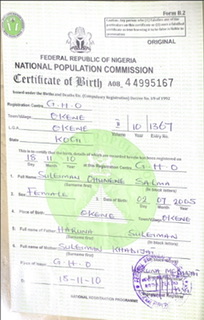 Form B.2
ORIGINAL
FEDERAL REPUBLIC OF NIGERIA
NATIONAL POPULATION COMMISSION
Certificate of Birth AOB 44995167
Issued under the Births and Deaths Etc. (Compulsory Registration) Decree No. 69 of 1992
Registration Centre G.H.O
Town/Village OKENE
L.G.A. OKENE 3 10 1367
Volume Year Entry No.
State KOGI
This is to certify that the birth, details of which are recorded herein has been registered on
18 11 10 at this Registration Centre G.H.O
1. Full Name SULEIMAN OHUNENE SALMA
(In block letters)
2. Sex FEMALE 3. Date of Birth 02 07 2005
4. Place of Birth OKENE OKENE
5. Full Name of Father HARUNA SULEIMAN
(In block letters)
6. Full Name of Mother SULEIMAN
(In block letters)
Place of Issue G.H.O
18-11-10
NATIONAL REGISTRATION PROGRAMME